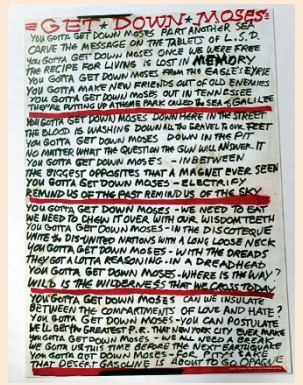 GET★DOWN★MOSES
YOU GOTTA GET DOWN MOSES PART ANOTHER SEA
CARVE THE MESSAGE ON THE TABLETS OF L.S.D.
YOU GOTTA GET DOWN MOSES ONCE WE WERE FREE
THE RECIPE FOR LIVING IS LOST IN MEMORY
YOU GOTTA GET DOWN MOSES FROM THE EAGLE'S EYRIE
YOU GOTTA MAKE NEW FRIENDS OUT OF OLD ENEMIES
YOU GOTTA GET DOWN MOSES OUT IN TENNESSEE
THEY'RE PUTTING UP A THEME PARK CALLED THE SEA OF GALILEE
YOU GOTTA GET DOWN MOSES DOWN HERE IN THE STREET
THE BLOOD IS WASHING DOWN ALL THE GRAVEL TO OUR FEET
YOU GOTTA GET DOWN MOSES DOWN IN THE PIT
NO MATTER WHAT THE QUESTION THE GUN WILL ANSWER IT
YOU GOTTA GET DOWN MOSES - INBETWEEN
THE BIGGEST OPPOSITES THAT A MAGNET EVER SEEN
YOU GOTTA GET DOWN MOSES - ELECTRIFY
REMIND US OF THE PAST REMIND US OF THE SKY
YOU GOTTA GET DOWN MOSES - WE NEED TO EAT
WE NEED TO CHEW IT OVER WITH OUR WISDOM TEETH
YOU GOTTA GET DOWN MOSES - IN THE DISCOTEQUE
UNITE THE DIS-UNITED NATIONS WITH A LONG LOOSE NECK
YOU GOTTA GET DOWN MOSES - WITH THE DREADS
THEY GOT A LOTTA REASONING - IN A DREADHEAD
YOU GOTTA GET DOWN MOSES - WHERE IS THE WAY?
WILD IS THE WILDERNESS THAT WE CROSS TODAY
YOU GOTTA GET DOWN MOSES CAN WE INSULATE
BETWEEN THE COMPARTMENTS OF LOVE AND HATE?
YOU GOTTA GET DOWN MOSES - YOU CAN POSTULATE
WE'LL GET THE GREATEST P.R. THAT NEW YORK CITY EVER MAKE
YOU GOTTA GET DOWN MOSES - WE ALL NEED A BREAK
WE GOTTA USE THIS TIME BEFORE THE NEXT EARTHQUAKE
YOU GOTTA GET DOWN MOSES - FOR PITYS SAKE
THAT DESERT GASOLINE IS ABOUT TO GO OPAQUE